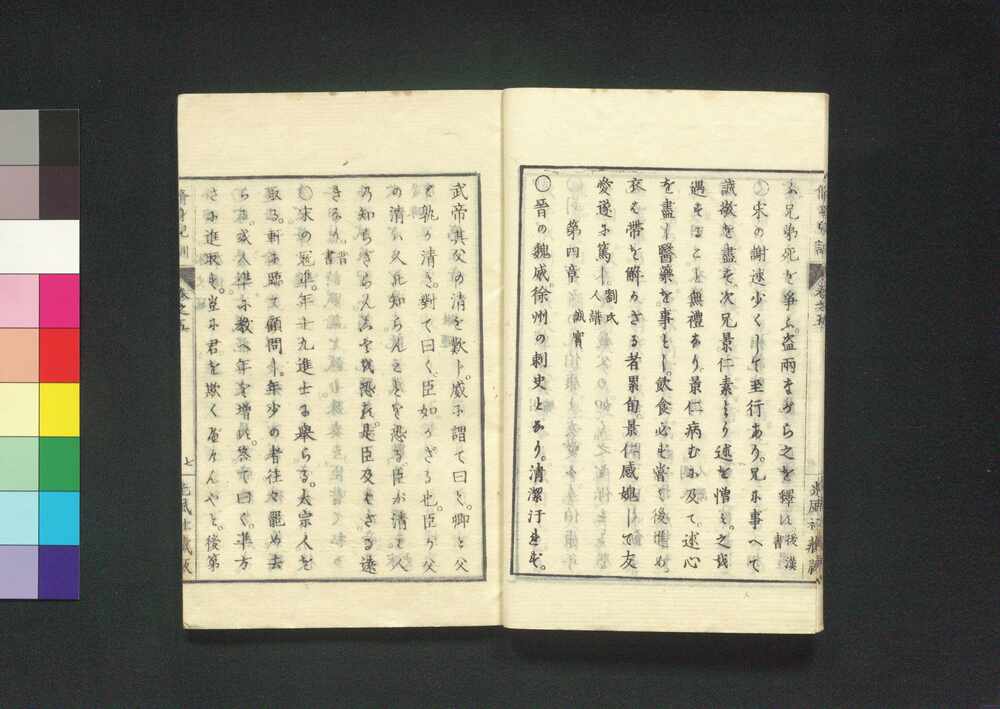 ふ兄弟死を爭ふ。盗兩ながら之を釋す 後漢書
〇宋の謝述少くして至行あり。兄に事へて
誠敬を盡す。次兄景仁素より述を憎む。之を
遇することも無禮あり。景仁病むに及て。述心
を盡し醫藥を事とし。飲食必ず嘗て後進め
衣も帶を解かざる者累旬。景仁感媿して友
愛遂に篤し。劉氏人譜
第四章 誠實
〇晉の魏威徐州の刺史となり。清潔汙れず。
武帝其父の清を歎し。威に謂て曰く。卿と父
と孰か清き。對て曰く。臣如かざる也。臣が父
の清は人の知らんことを恐る。臣が清は人
の知らざらんことを恐る。是臣及ばざる遠
きなり。晉書
〇宋の寇準。年十九進士に擧らる。太宗人を
取る。軒に臨て顧問し。年少の者往々罷め去
らる。或人準に教へ年を増す。答て曰く。準方
さに進取す。豈に君を欺くべけんやと。後第
脩身兒訓
卷之五
七
光風社藏版